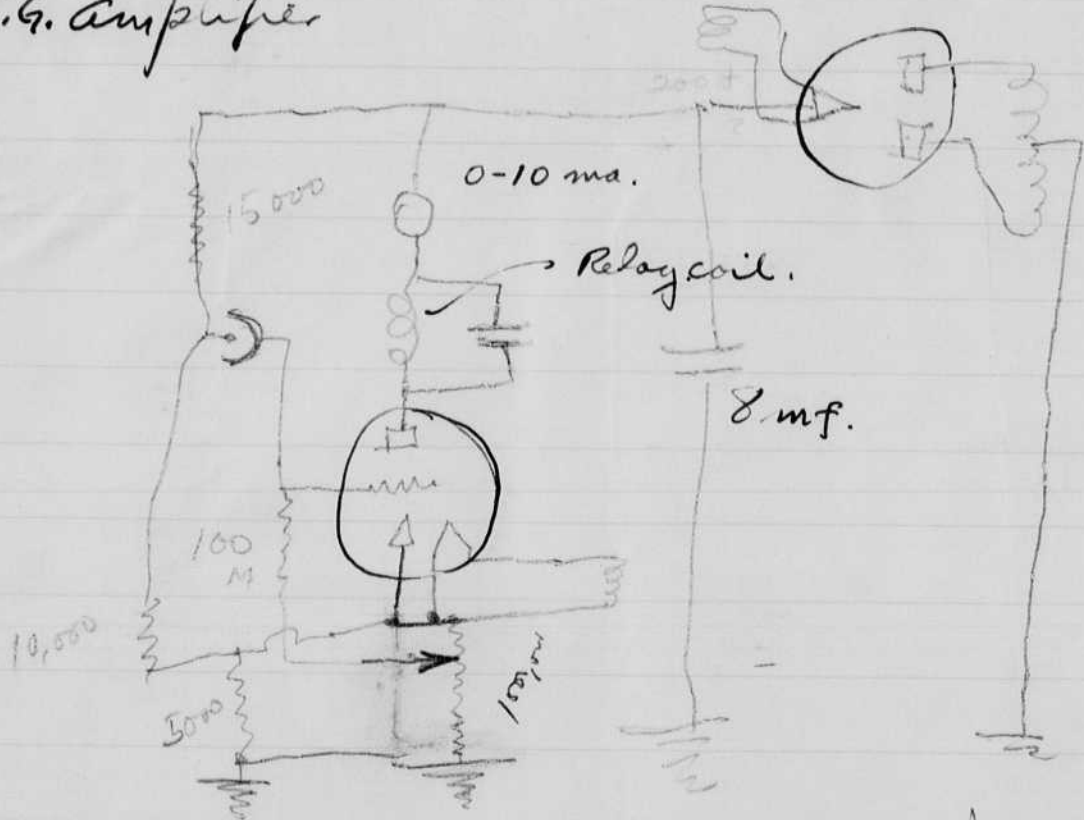 .G. Amplifier
15000
0-10 ma.
Relay coil.
8 mf.
100
M
10,000
5000